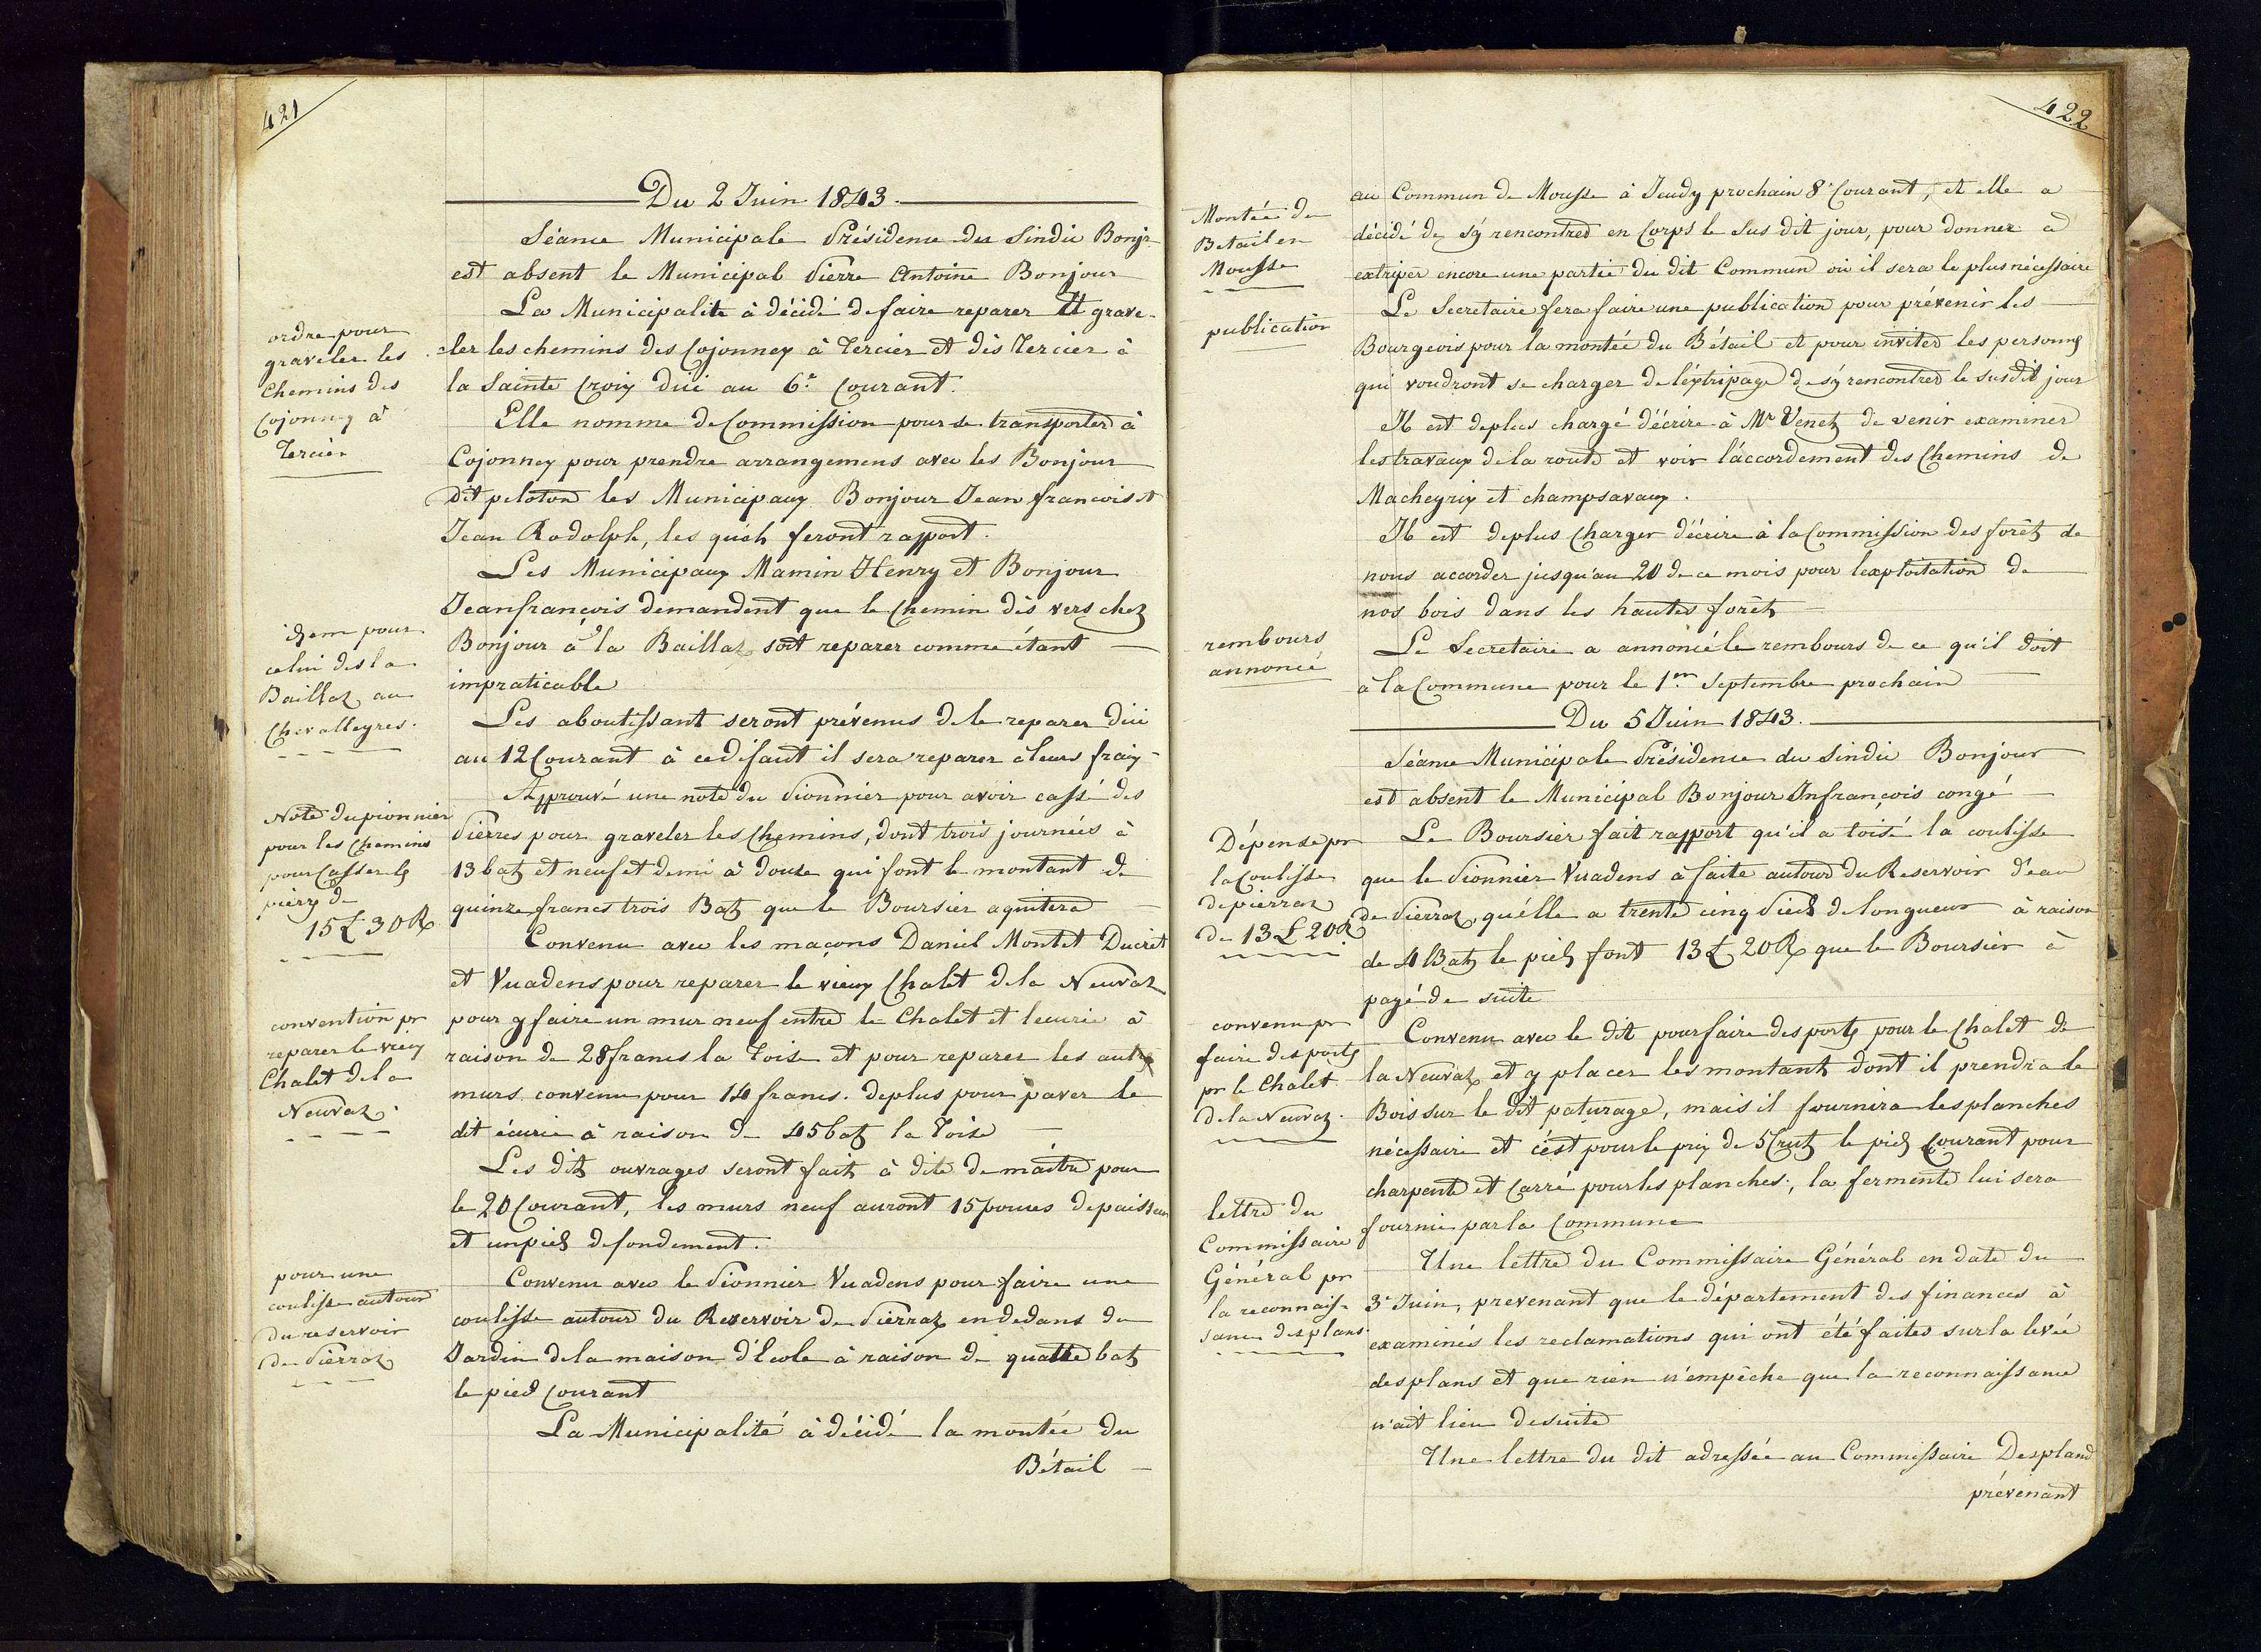 421
Du 2 Juin 1843.
Séance Municipale Présidence du Sindic Bonjr
est absent le Municipal Pierre Antoine Bonjour
La Municipalité à décidé de faire reparer Et grave-
-ler les chemins des Cojonnex à Tercier et dès Tercier à
la Sainte Croix dici au 6e Courant.
Elle nomme de Commission pour se transporter à
Cojonnex pour prendre arrangemens avec les Bonjour
dit peloton les Municipaux Bonjour Jean francois et
Jean Rodolph, les quels feront rapport.
Les Municipaux Mamin Henry et Bonjour
Jeanfrançois demandent que le Chemin dès vers chez
Bonjour à la Baillaz soit reparer comme étant
impraticable
Les aboutissant seront prévenus de le reparer dici
au 12 Courant à ce défaut il sera reparer à leurs fraix
Approuvé une note du Pionnier pour avoir cassé des
Pierres pour graveler les Chemins, dont trois journées à
13 batz et neuf et demi à douze qui font le montant de
quinze francs trois Batz que le Boursier aquitera
Convenu avec les maçons Daniel Montet Ducret
et Vuadens pour reparer le vieux Chalet de la Neuvaz
pour y faire un mur neuf entre le Chalet et lecurie à
raison de 28 francs la Toise et pour reparer les autres
murs convenu pour 14 francs. deplus pour paver le
dit écurie à raison de 45 batz la Toise
Les dits ouvrages seront faits à dite de maître pour
le 20 Courant, les murs neuf auront 15 pouces depaisseur
et un pied de fondement.
Convenu avec le Pionnier Vuadens pour faire une
coulisse autour du Reservoir de Pierraz en dedans du
Jardin de la maison d'Ecole à raison de quatre batz
le pied Courant
La Municipalité à décidé la montée du
Bétail
ordre pour
graveler les
Chemins des
Cojonnex à
Tercier
idem pour
celui des la
Baillaz au
Chevalleyres.
Note du pionnier
pour les Chemins
pour Casser les
pierres de
15 £ 30 R
convention pr
reparer le vieux
Chalet de la
Neuvaz.
pour une
coulisse autour
du reservoir
de Pierraz
422
au Commun de Mousse à Jeudy prochain 8e Courant, et elle a
décidé de s'y rencontrer en Corps le sus dit jour, pour donner a
extriper encore une partie du dit Commun où il sera le plus nécessaire
Le Secretaire fera faire une publication pour prévenir les
Bourgeois pour la montée du Bétail et pour inviter les personnes
qui voudront se charger de l'éxtripage de s'y rencontrer le susdit jour
Il est deplus chargé d'écrire à Mr Venetz de venir examiner
les travaux de la route et voir l'accordement des Chemins de
Macheyrix et champsavaux.
Il est deplus Charger d'écrire à la Commission des forêts de
nous accorder jusqu'au 20 de ce mois pour lexploitation de
nos bois dans les hautes forêts
Le Secretaire a annoncé le rembours de ce qu'il doit
à la Commune pour le 1er Septembre prochain
Du 5 Juin 1843.
Séance Municipale Présidence du Sindic Bonjour
est absent le Municipal Bonjour Jnfrançois congé
Le Boursier fait rapport qu'il a toisé la coulisse
que le Pionnier Vuadens à faite autour du Reservoir d'eau
de Pierraz, qu'elle a trente cinq Pieds de longueur à raison
de 4 Batz le pied font 13 £ 20 R que le Boursier à
payé de suite
Convenu avec le dit pour faire des portes pour le Chalet de
la Neuvaz et y placer les montants dont il prendra le
Bois sur le dit paturage, mais il fournira les planches
nécessaire et c'est pour le prix de 5 Crutz le pied Courant pour
charpente et Carré pour les planches, la fermente lui sera
fournie par la Commune
Une lettre du Commissaire Général en date du
3e Juin, prevenant que le département des finances à
examinés les reclamations qui ont été faites sur la levée
des plans et que rien n'empêche que la reconnaissance
n'ait lieu desuite
Une lettre du dit adressée au Commissaire Despland
prévenant
Montée du
Betail en
Mousse
publication
rembours
annoncé
Dépense pr
la Coulisse
de pierraz
de 13 £ 20 R
convenu pr
faire des portes
pr le Chalet
de la Neuvaz.
lettre du
Commissaire
Général pr
la reconnais-
sance des plans.